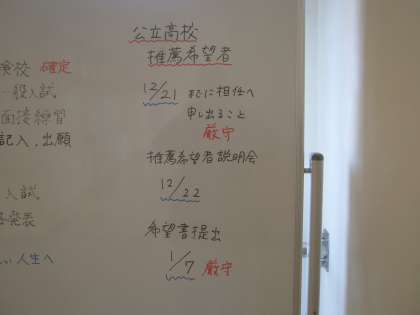 公立高校
推薦希望者
12/21 までに担任へ
申し出ること
厳守
推薦希望者説明会
12/22
希望書提出
1/7 厳守
検校 確定
一般入試
面接練習
記入、出願
入試
発表
人生へ